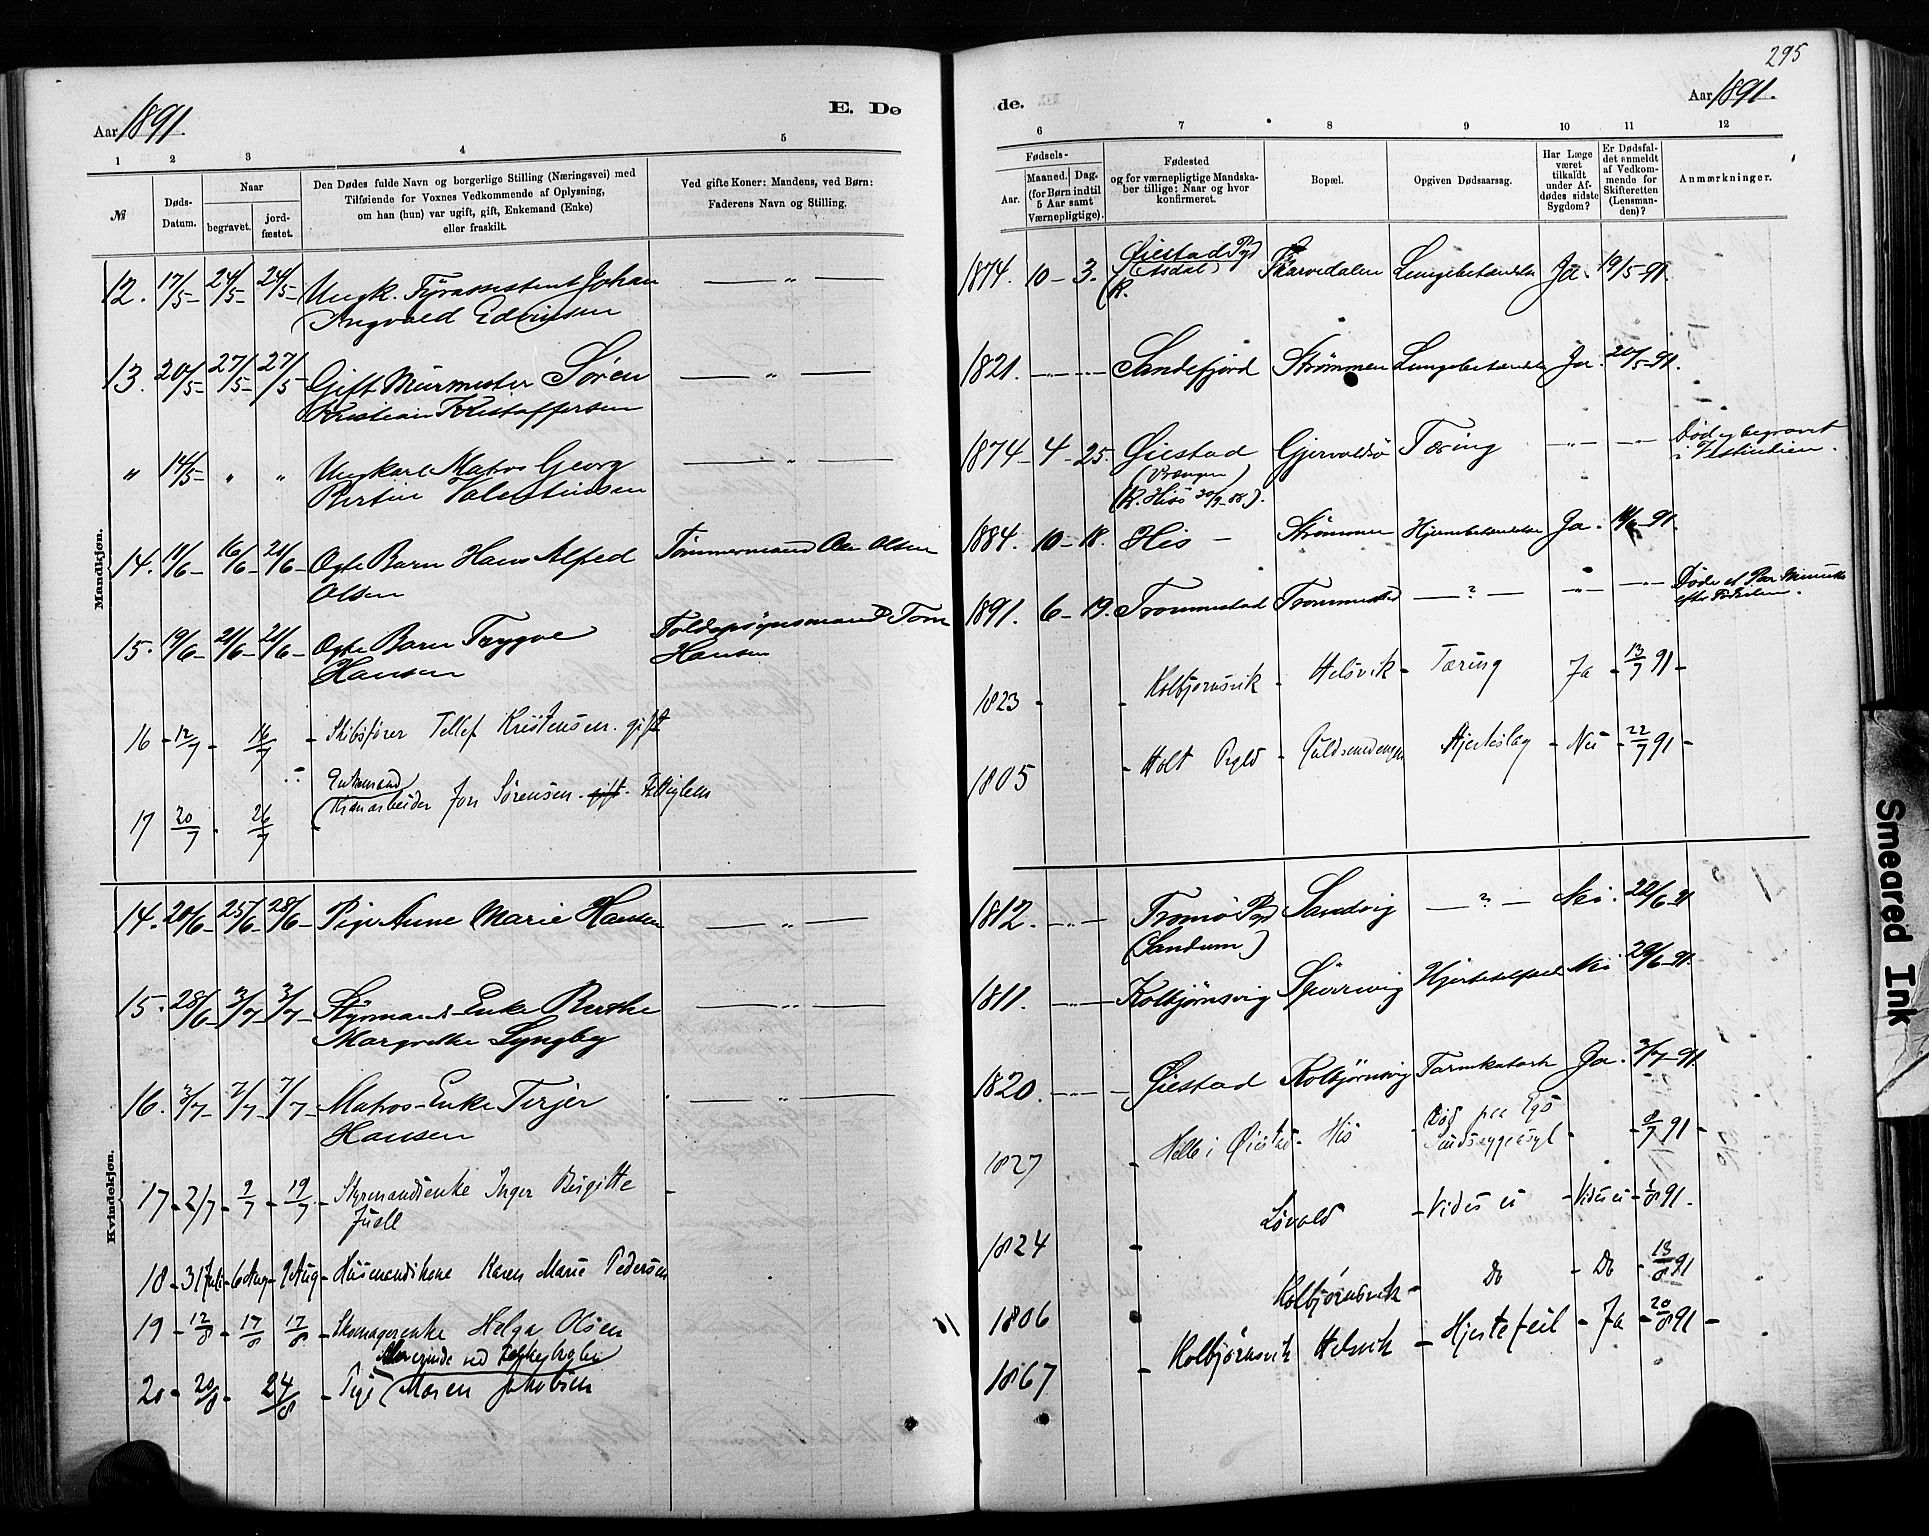 295
Aar 1891.
E. Dø
de.
Aar 1891.
1 2 3 4 5 6 7 8 9 10 11 12
№
Døds-Datum.
Naar
begravet.
jord-fæstet.
Den Dødes fulde Navn og borgerlige Stilling (Næringsvei) med
Tilføiende for Voxnes Vedkommende af Oplysning,
om han (hun) var ugift, gift, Enkemand (Enke)
eller fraskilt.
Ved gifte Koner: Mandens, ved Børn:
Faderens Navn og Stilling.
Fødsels-
Aar.
Maaned. Dag.
(for Børn indtil
5 Aar samt
Værnepligtige).
Fødested
og for værnepligtige Mandska-
ber tillige: Naar og hvor
konfirmeret.
Bopæl.
Opgiven Dødsaarsag.
Har Læge
været
tilkaldt
under Af-
dødes sidste
Sygdom?
Er Dødsfal-
det anmeldt
af Vedkom-
mende for
Skifteretten
(Lensman-
den)?
Anmærkninger.
Mandkjøn.
12. 17/5 24/5 24/5 Ungk. Fyrassistent Johan
Ingvald Edvinsen
— „ — 1874. 10 – 3. Øiestad Pgd
(Asdal) Skarvedalen Lungebetændelse Ja. 19/5 – 91.
13. 20/5 27/5 27/5 Gift Murmester Søren
Kristian Kristoffersen
— „ — 1821. Sandefjord Strømmen Lungebetændelse Ja. 20/5 – 91.
„ 14/5 „ „ Ungkarl Matros Georg
Bertin Valentinsen
— „ — 1874 – 4 – 25. Øiestad
(Vrængen)
(K. Hisø
Gjervoldsø Tæring — „ — Død og begravet
14. 11/6 16/6 21/6 Ægte Barn Hans Alfred
Olsen
Tømmermand Ole Olsen 1884. 10 – 18. His – Strømmen Hjernebetændelse Ja. 91.
15. 19/6 21/6 21/6 Ægte Barn Trygve
Hansen
Toldopsynsmand Tom
Hansen
1891. 6 – 19. Trommestad Trommestad — ? — — „ — Døde et Par Minutter
efter Fødselen.
16 12/7 16/7 Skibsfører Tellef Kristensen. gift
1823 Kolbjørnsvik Helsvik Tæring Ja 13/7 91
17 20/7 26/7 Enkemand
Jon Sørensen. gift.
1805 Holt Pgld Guldsmedengen Hjerteslag Nei 22/7 91
Kvindekjøn.
14. 20/6 25/6 28/6 Pige Anne Marie Hansen
— „ — 1812. Tromø Pgd
(Sandum)
Sandvig — ? — Nei. 22/6 – 91
15. 28/6 3/7 3/7 Styrmands-Enke Berthe
Margrethe Lyngby
— „ — 1811. Kolbjørnsvig Spirrevig Hjertefeil Nei 29/6 – 91.
16. 3/7 7/7 7/7 Matros-Enke Terjer
Hansen
— „ — 1820. Øiestad Kolbjørnsvig Tarmkatarh Ja. 3/7 – 91.
17 2/7 9/7 19/7 Styrmandsenke Inger Birgitte
Juell
1827 Helle i Øiestad His Død paa Egs
Sindssygeasyl 9/7 91
18 31 Juli 6 Aug 9 Aug Husmandskone Karen Marie Pedersen
1824 Løvold Vides ei Vides ei 1/8 91.
19 12/8 17/8 17/8 Skomagerenke Helga Olsen
1806 Kolbjørnsvik Do Do 13/8 91
20 20/8 24/8 Pige Maren Jakobsen
1867 Kolbjørnsvik Helsvik Hjertefeil Ja 20/8 91
Smeared Ink